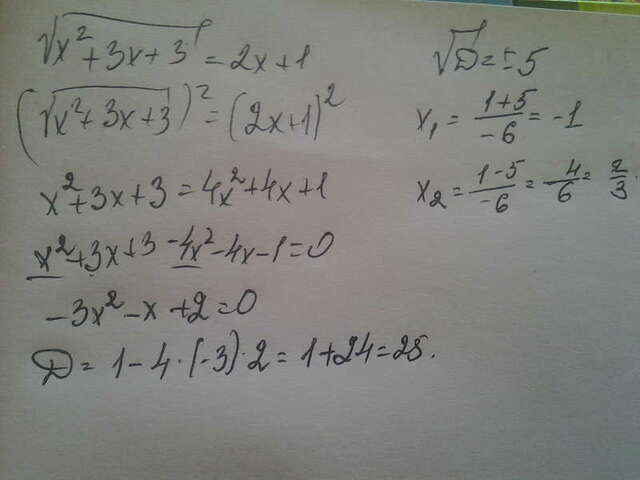 √x²+3x+3 = 2x+1
(√x²+3x+3)² = (2x+1)²
x²+3x+3 = 4x²+4x+1
x²+3x+3-4x²-4x-1=0
-3x²-x+2=0
D = 1-4·(-3)·2 = 1+24=25.
√D = ±5
x₁ = 1+5/-6 = -1
x₂ = 1-5/-6 = -4/6 = 2/3.